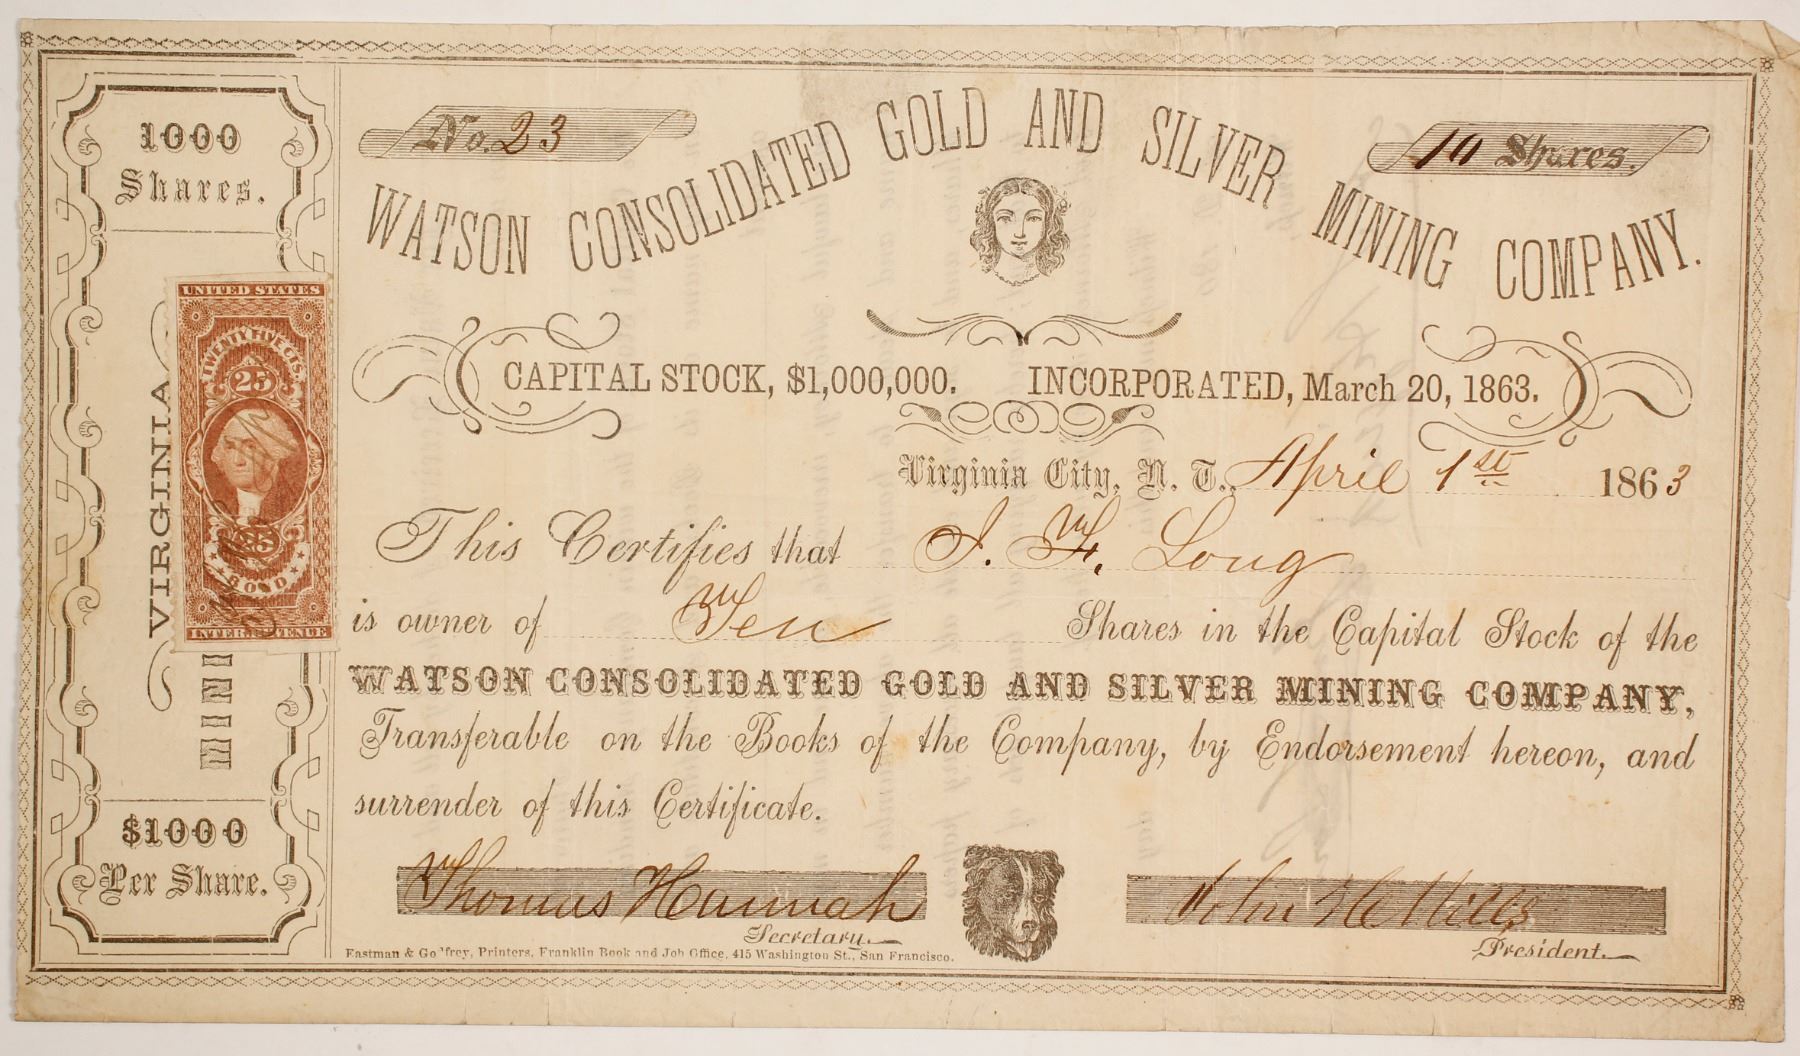 1000
Shares.
VIRGINIA
MINING
$1000
Per Share.
UNITED STATES
TWENTY FIVE CTS.
25
25
BOND
INTER. REVENUE
No. 23
10 Shares.
WATSON CONSOLIDATED GOLD AND SILVER MINING COMPANY.
CAPITAL STOCK, $1,000,000. INCORPORATED, March 20, 1863.
Virginia City, N. T., April 1st 1863
This Certifies that J. H. Long
is owner of Ten Shares in the Capital Stock of the
WATSON CONSOLIDATED GOLD AND SILVER MINING COMPANY,
Transferable on the Books of the Company, by Endorsement hereon, and
surrender of this Certificate.
Thomas Hannah
Secretary.
John Mills
President.
Eastman & Godfrey, Printers, Franklin Book and Job Office, 415 Washington St., San Francisco.